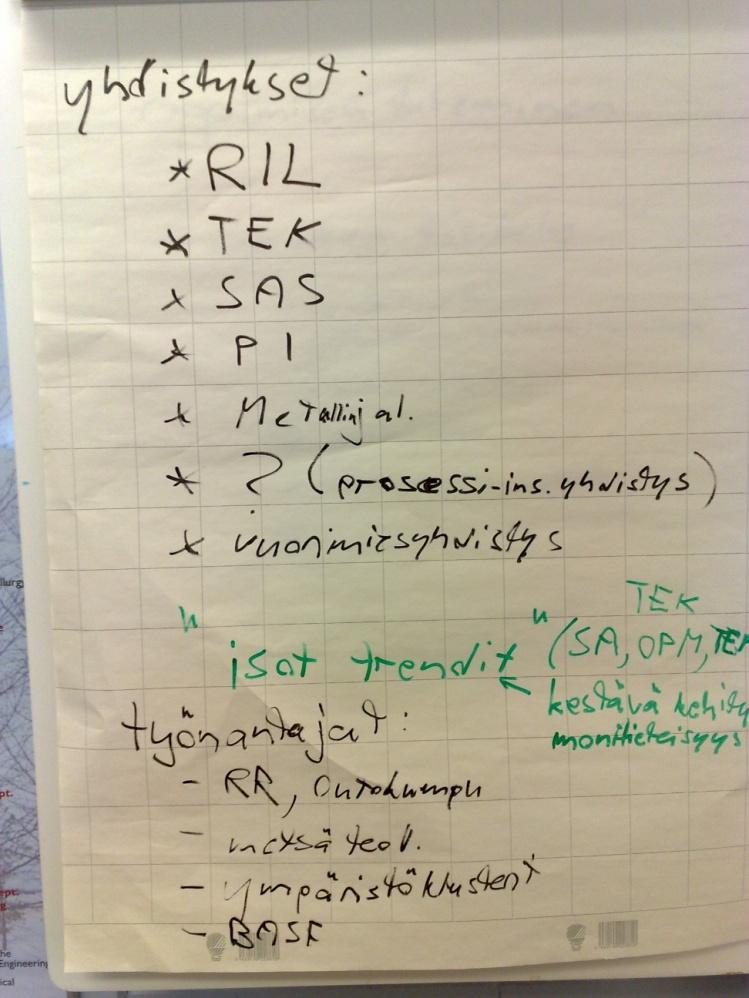 yhdistykset:
* RIL
* TEK
* SAS
* PI
* Metallinjal.
* ? (prosessi-ins. yhdistys)
* vuorimiesyhdistys
TEK
"isot trendit" (SA, OPM, TEM
kestävä kehity
monitieteisyys
työnantajat:
- RR, Outokumpu
- metsäteol.
- ympäristöklusteri
- BASF
llurg
pt.
ept.
g.
he
Engineering
ical